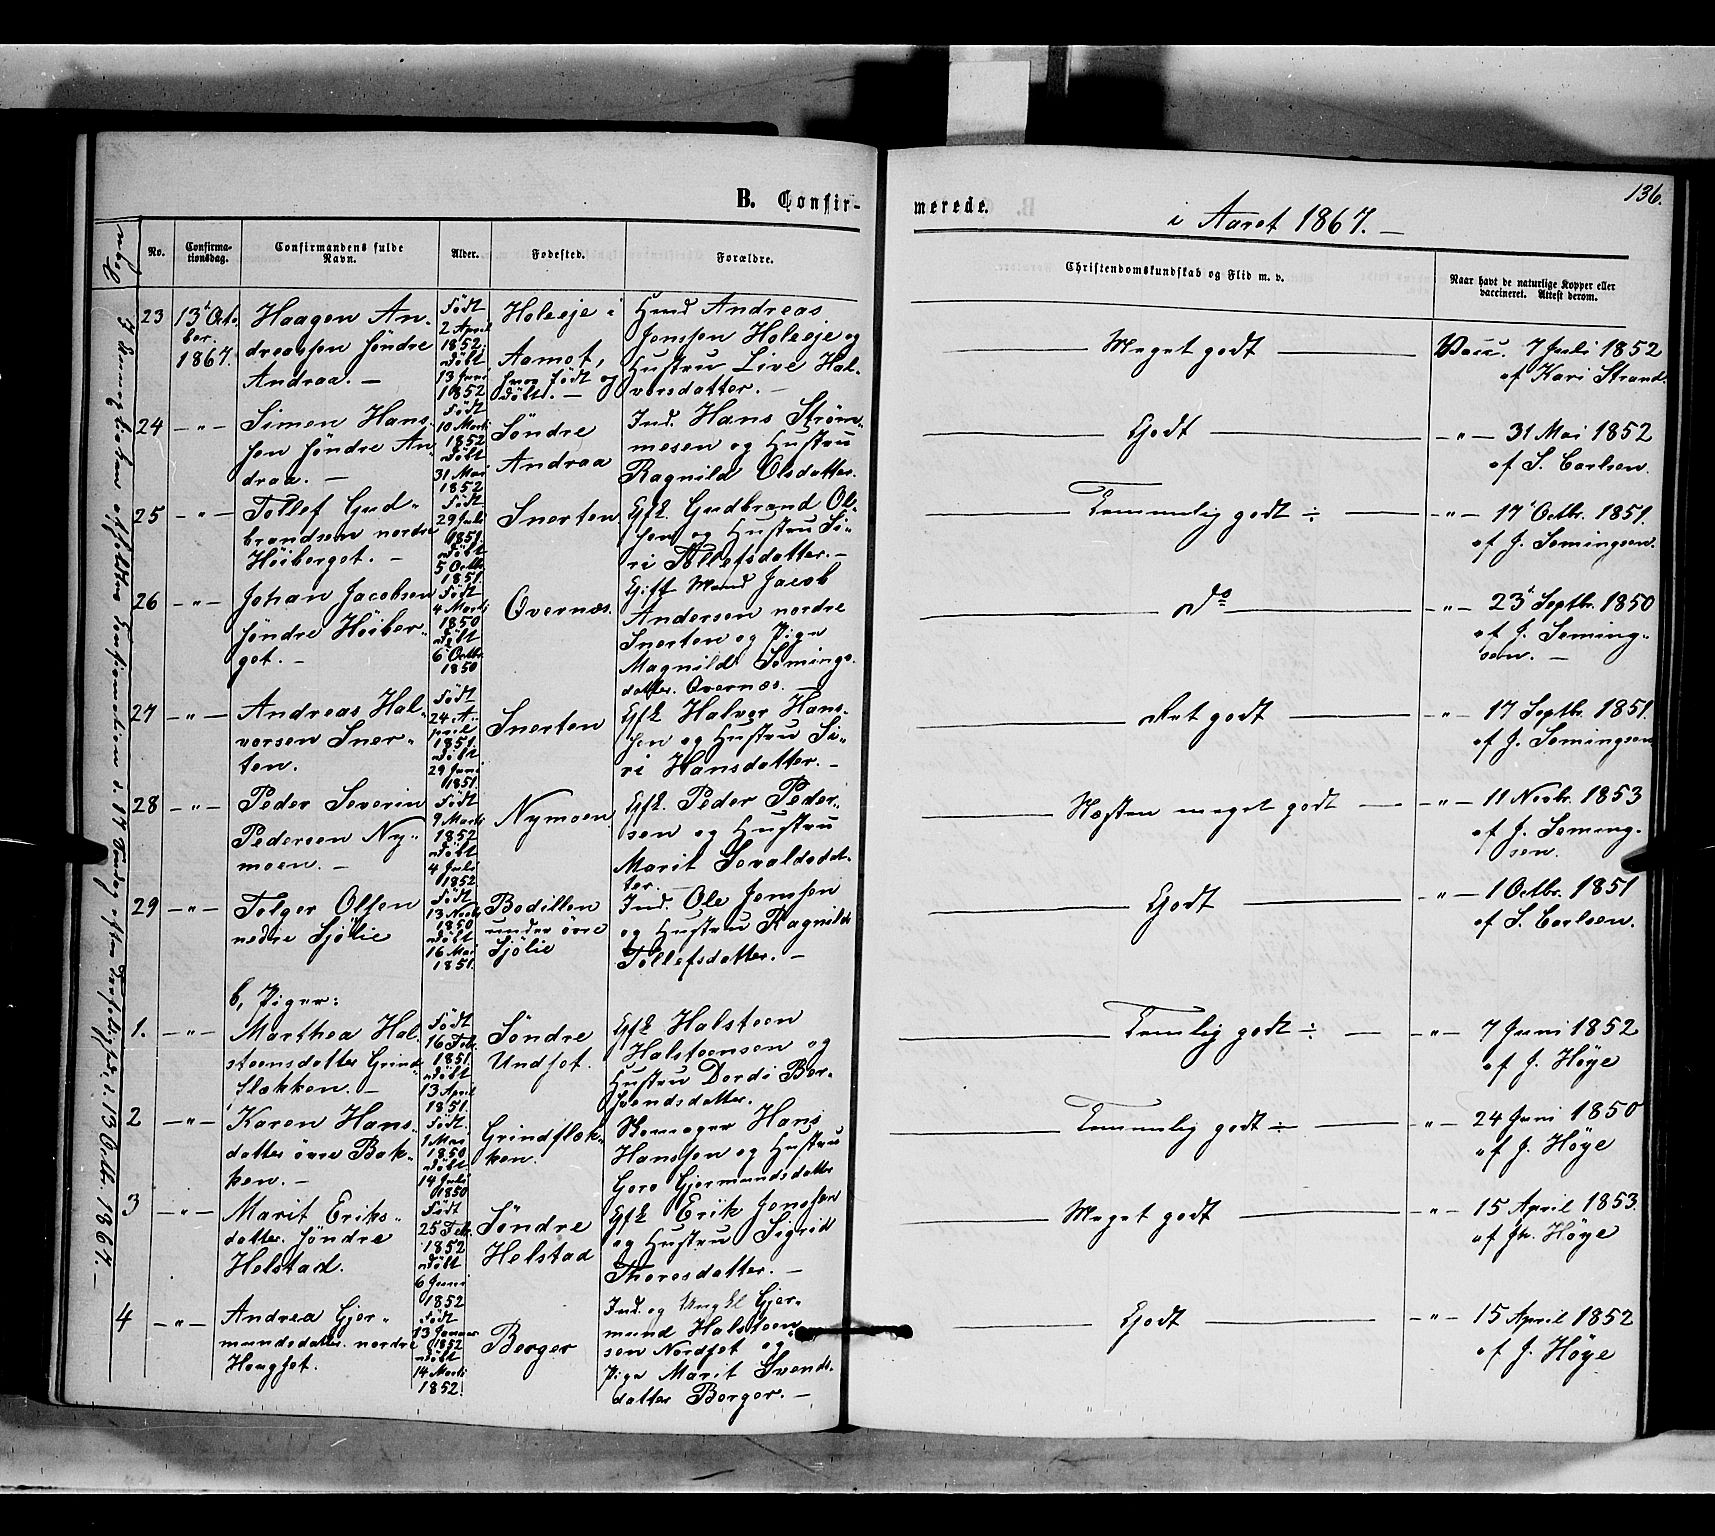 B. Confir-
merede.
i Aaret 1867.
136.
No.
Confirma-
tionsdag.
Confirmandens fulde
Navn.
Alder.
Fødested.
Forældre.
Christendomskundskab og Flid m. v.
Naar havt de naturlige Kopper eller
vaccineret. Attest derom.
23
13de Octo
ber.
1867.
Haagen An-
dreassen søndre
Andraa. —
Født
2 April
1852.
Døbt
13 Juni
1852
Holeeje i
Aamot,
hvor født og
døbt. —
Hmd Andreas
Jonssen Holeeje og
Hustru Live Hal-
vorsdatter. —
Meget godt
Vacc. 7 Juli 1852
af Kari Strand.
24
—„—
Simen Hans-
sen søndre An
draa. —
Født
10 Marti
1852
Døbt
31 Mai
1852
Søndre
Andraa
Ind. Hans Strøm-
mesen og Hustru
Ragnild Olsdatter.
Godt
—„— 31 Mai 1852
af S. Carlsen.
25
—„—
Tollef Gud-
brandsen nordre
Høiberget. —
Født
29 Juli
1851.
Døbt
5 Octbr
1851.
Snerten
Gfk. Gudbrand Ol-
sen og Hustru Si-
ri Tollefsdatter. —
Temmelig godt ÷
—„— 17 Octbr. 1851.
af J. Semingsen.
26
—„—
Johan Jacobsen
søndre Høiber-
get. —
Født
4 Marti
1850
Døbt
6 Octbr.
1850
Øvernæs.
Gift Mand Jacob
Andersen nordre
Snerten og Pige
Magnild Semings-
datter Øvernæs. —
Do
—„— 23 Septbr. 1850
af J. Seming-
sen. —
27
—„—
Andreas Hal-
vorsen Sner-
ten.
Født
24 A-
pril
1851.
Døbt
29 Juni
1851.
Snerten
Gfk Halvor Hans-
sen og Hustru Si-
ri Hansdatter. —
Ret godt
—„— 17 Septbr. 1851.
af J. Semingsen
28
—„—
Peder Severin
Pedersen Ny-
moen. —
Født
9 Marti
1852
Døbt
4 Juli
1852
Nymoen
Gfk. Peder Peder-
sen og Hustru
Marit Sevaldsdat-
ter. —
Næsten meget godt
—„— 11 Novbr. 1853
af J. Seming-
sen.
29
—„—
Tolger Olsen
nedre Sjølie
Født
13 Novbr
1850
Døbt
16 Mai
1851.
Bodillen
under øvre
Sjølie
Ind. Ole Jonssen
og Hustru Ragnild
Tollefsdatter. —
Godt
—„— 1 Octbr. 1851
af S. Carlsen.
b, Piger:
1.
—„—
Marthea Hal
steensdatter Grind-
flækken. —
Født
16 Febr
1851.
Døbt
13 April
1851.
Søndre
Undset.
Gfk Halsteen
Halsteensen og
Hustru Dordi Ber-
svendsdatter.
Temlig godt ÷
—„— 7 Juni 1852
af J. Høye
2
—„—
Karen Hans-
datter øvre Bak-
ken. —
Født.
1 Mai
1850
Døbt
14 Juli
1850
Grindflæk-
ken.
Skomager Hans
Hanssen og Hustru
Goro Gjermundsdatter
Temmelig godt ÷
—„— 24 Juni 1850
af J. Høye
3
—„—
Marit Eriks-
datter søndre
Helstad.
Født
25 Febr.
1852
Døbt
6 Juni
1852
Søndre
Helstad
Gfk Erik Jonssen
og Hustru Sigrid
Thoresdatter. —
Meget godt
—„— 15 April 1853.
af Jh. Høye
4
—„—
Andrea Gjer-
mundsdatter nordre
Haugset.
Født
13 Januar
1852
Døbt
14 Marti
1852.
Berger
Ind. og Ungkl Gjer-
mund Halsteen-
sen Nordset og
Pige Marit Svends-
datter Berger. —
Godt
—„— 15 April 1852
af J. Høye